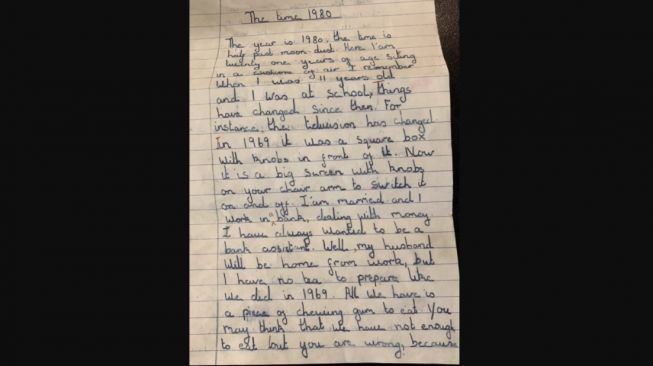 The time 1980
The year is 1980, the time is
half past moon dust. Here I'am
twenty one years of age siting
in a cushions of air I remember
When I was 11 years old
and I was at school, things
have changed since then. For
instance, the television has changed
In 1969 it was a square box
with knobs in front of it. Now
it is a big screen with knobs
on your chair arm to switch it
on and off. I'am married and I
work in a bank, dealing with money.
I have always wanted to be a
bank assistant. Well, my husband
will be home from work, but
I have no tea to prepare like
we did in 1969. All we have is
a piece of chewing gum to eat. You
may think that we have not enough
to eat but you are wrong, because